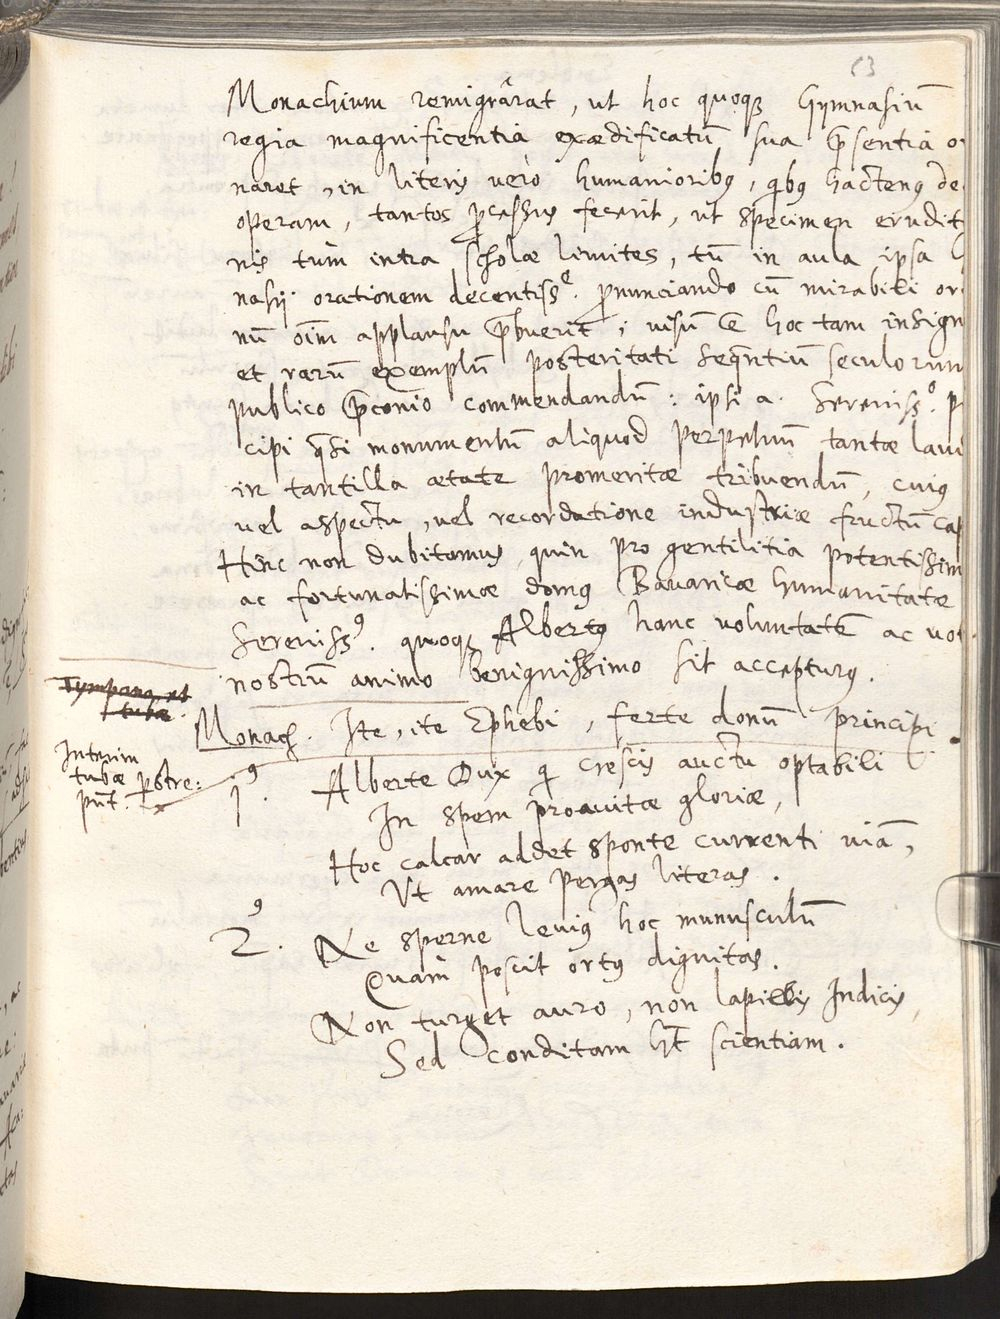 63
Monachium remigrârat, ut hoc quoqꝫ Gymnasiū
regia magnificentia exædificatū sua p̄sentia or
naret, in literis verò humanioribꝯ, qibꝯ hactenꝯ de
operam, tantos p̄cessus fecerit, ut specimen erudit
nis tùm intra scholæ limites, tū in aula ipsa
nasij orationem decentissᵉ. p̄nunciando cū mirabili or
nū oīm applausu p̄buerit; uisū ē hoc tam insign
et rarū exemplū posteritati seqntiū seculorum
publico p̄conio commendandū: ipsi a. Serenissᵒ. P
cipi qsi monumentū aliquod perpetuū tantæ laud
in tantilla ætate promeritæ tribuendū, cuiꝯ
uel aspectu, uel recordatione industriæ fructū cap
Hinc non dubitamus, quin pro gentilitia potentissim
ac fortunatissimæ domꝯ Bauaricæ humanitate
Serenissꝯ. quoqꝫ Albertꝯ hanc voluntatē ac uot
nostrū animo benignissimo sit accepturꝯ.
Tympana, et
tubæ.
Monach. Ite, ite Ephebi, ferte donū principi.
Interim
tubæ p̱stre:
pūt.
1ꝯ. Alberte Dux q crescis auctu optabili
In spem proauitæ gloriæ,
Hoc calcar addet sponte currenti uiā,
Vt amare pergas literas.
2ꝯ. Ne sperne leuiꝯ hoc munusculū
Quàm poscit ortꝯ dignitas.
Non turget auro, non lapillis Indicis,
Sed conditam ht̄ scientiam.